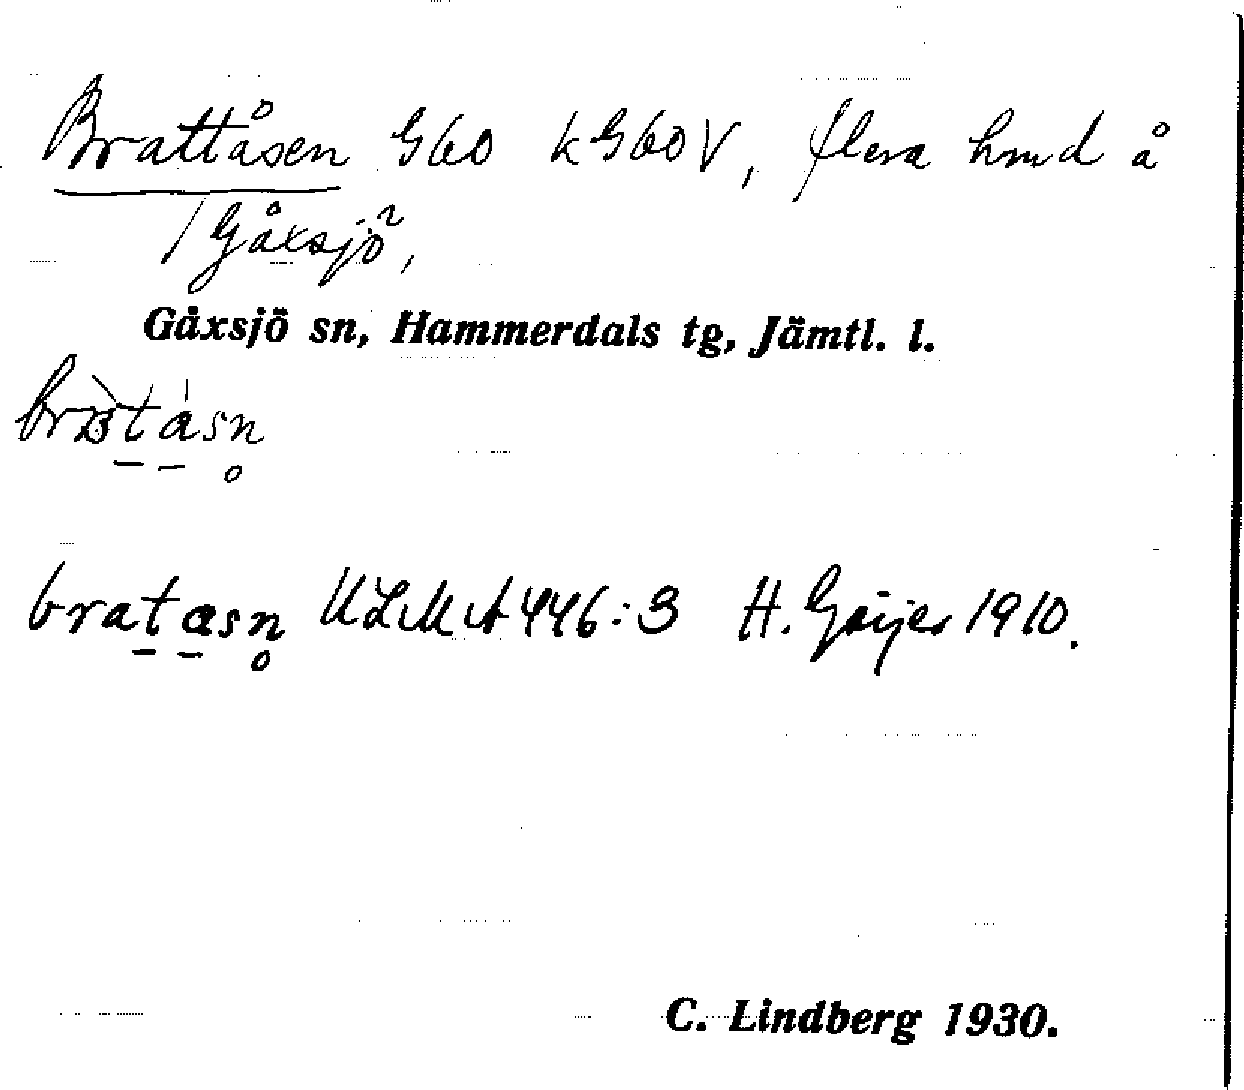 Brattåsen G60 kG60V, flera hmd å
/ Gåxsjö²,
Gåxsjö sn, Hammerdals tg, Jämtl. l.
bratasn ULMA 446:3 H. Geijer 1910.
C. Lindberg 1930.